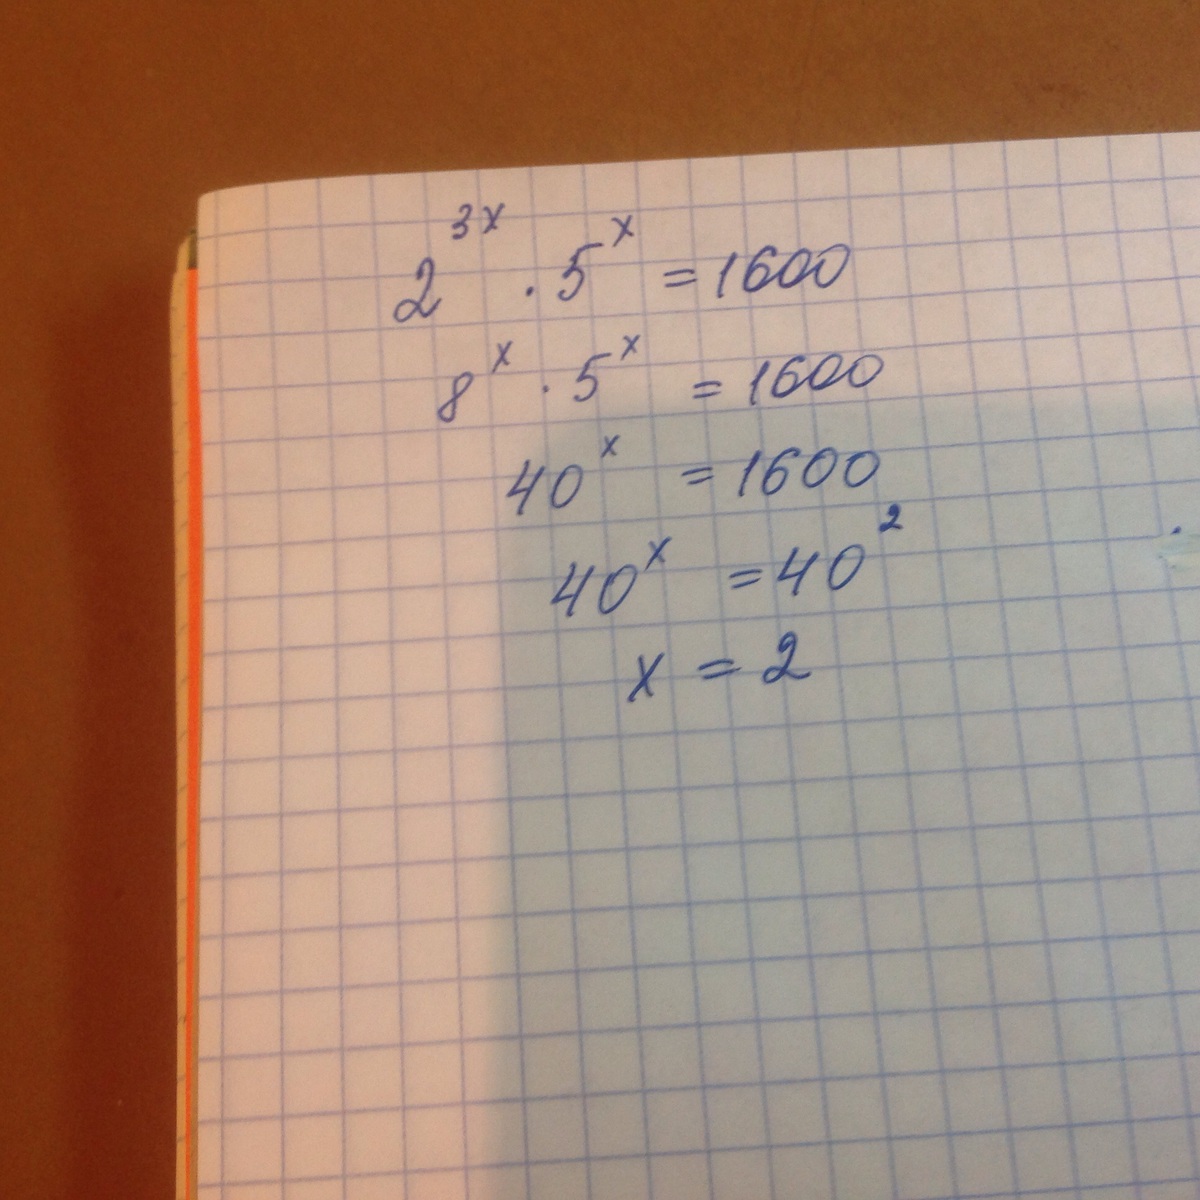 2^{3x} · 5^x = 1600
8^x · 5^x = 1600
40^x = 1600
40^x = 40^2
x = 2